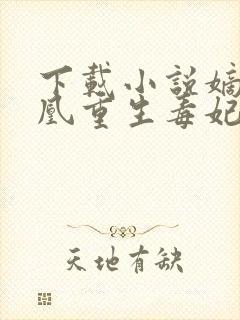 下載小說嫡
凰重生毒妃
天地有缺